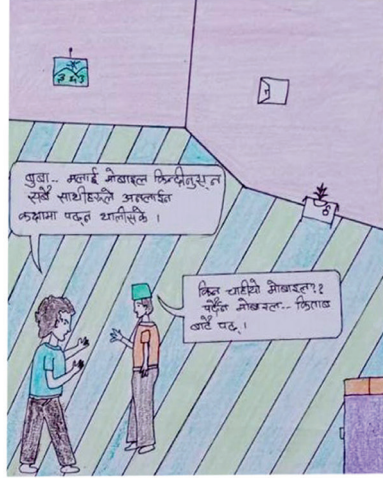 बुबा.. मलाई मोबाइल किन्दीनुस् न
सबै साथीहरूले अनलाईन
कक्षामा पढ्न थालीसके ।
किन चाहीयो मोबाइल??
पर्दैन मोबाइल.. किताब
बाटै पढ् ।